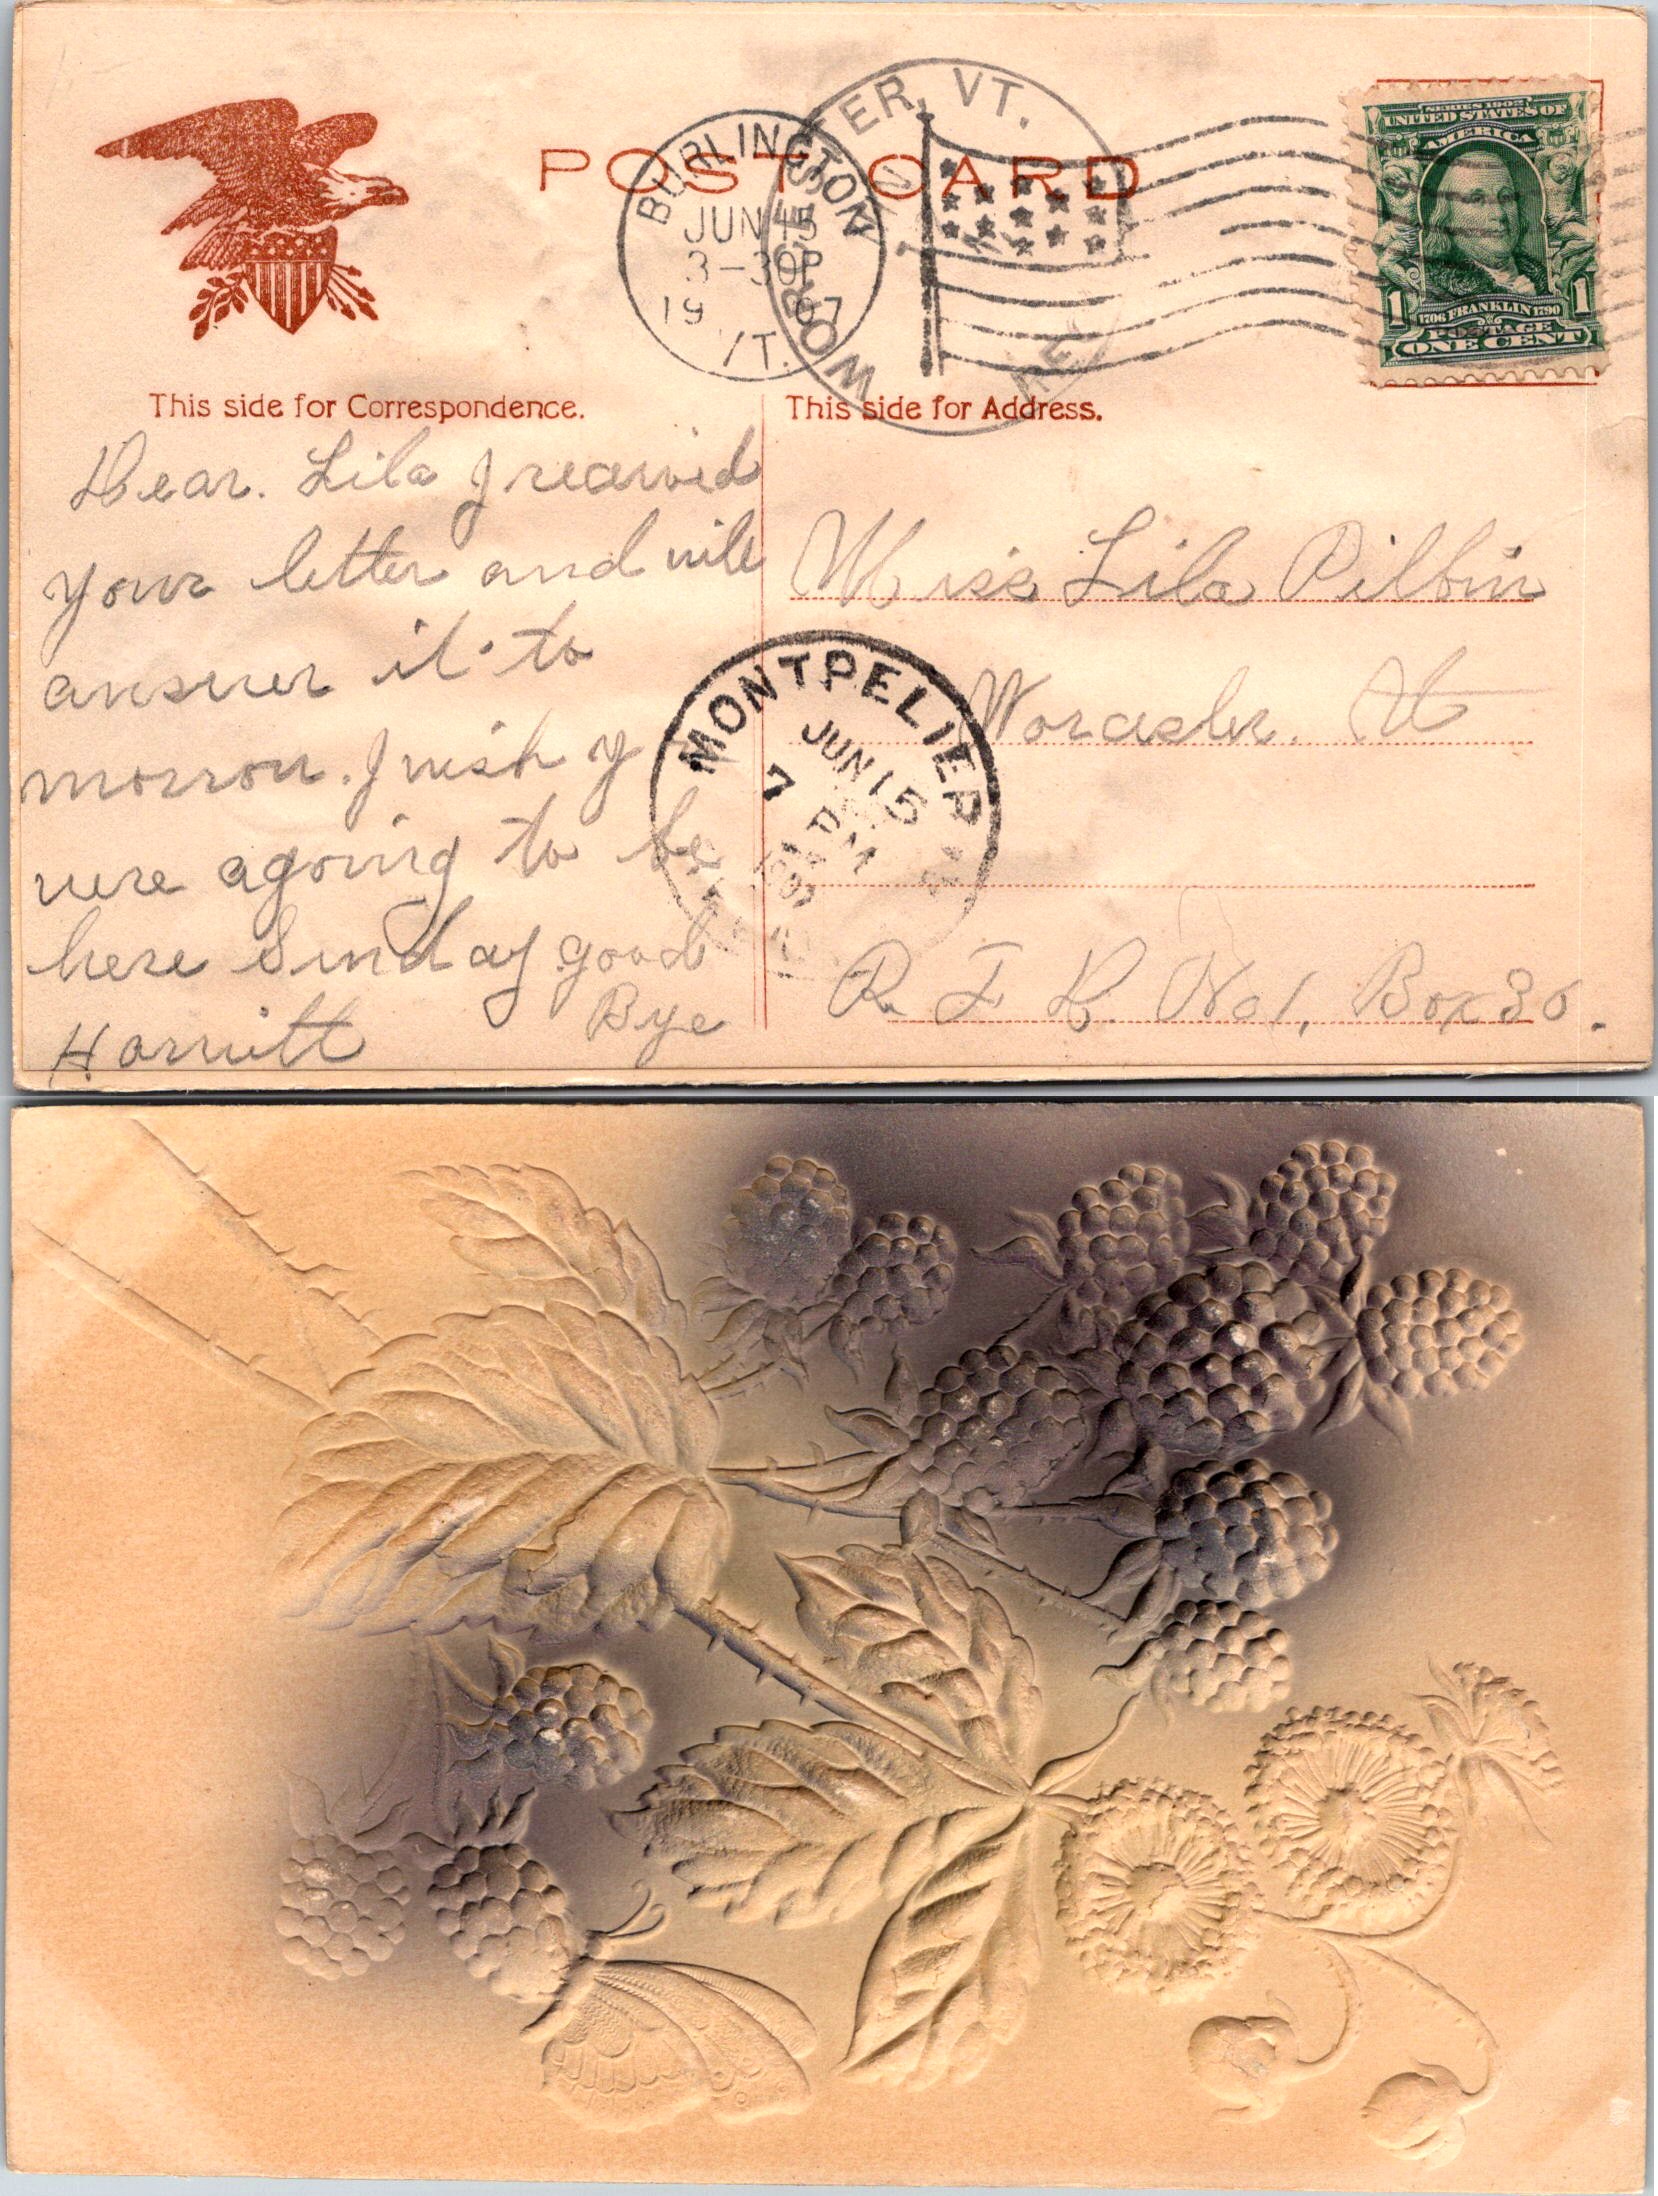 POST CARD
BURLINGTON
JUN 15
3-30P
1907
VT.
WORCESTER, VT.
SERIES 1902
UNITED STATES OF
AMERICA
1 1
1706 FRANKLIN 1790
POSTAGE
ONE CENT
This side for Correspondence.
This side for Address.
Dear. Lila I recarived
your letter and wile
answer it to
morrow. I wish y
were agoing to be
here Sunday good
Bye
Harriitt
Miss Lila Pilbin
Worcester. Vt
R. F. D. No 1. Box 30.
MONTPELIER
JUN 15
7 PM
1907